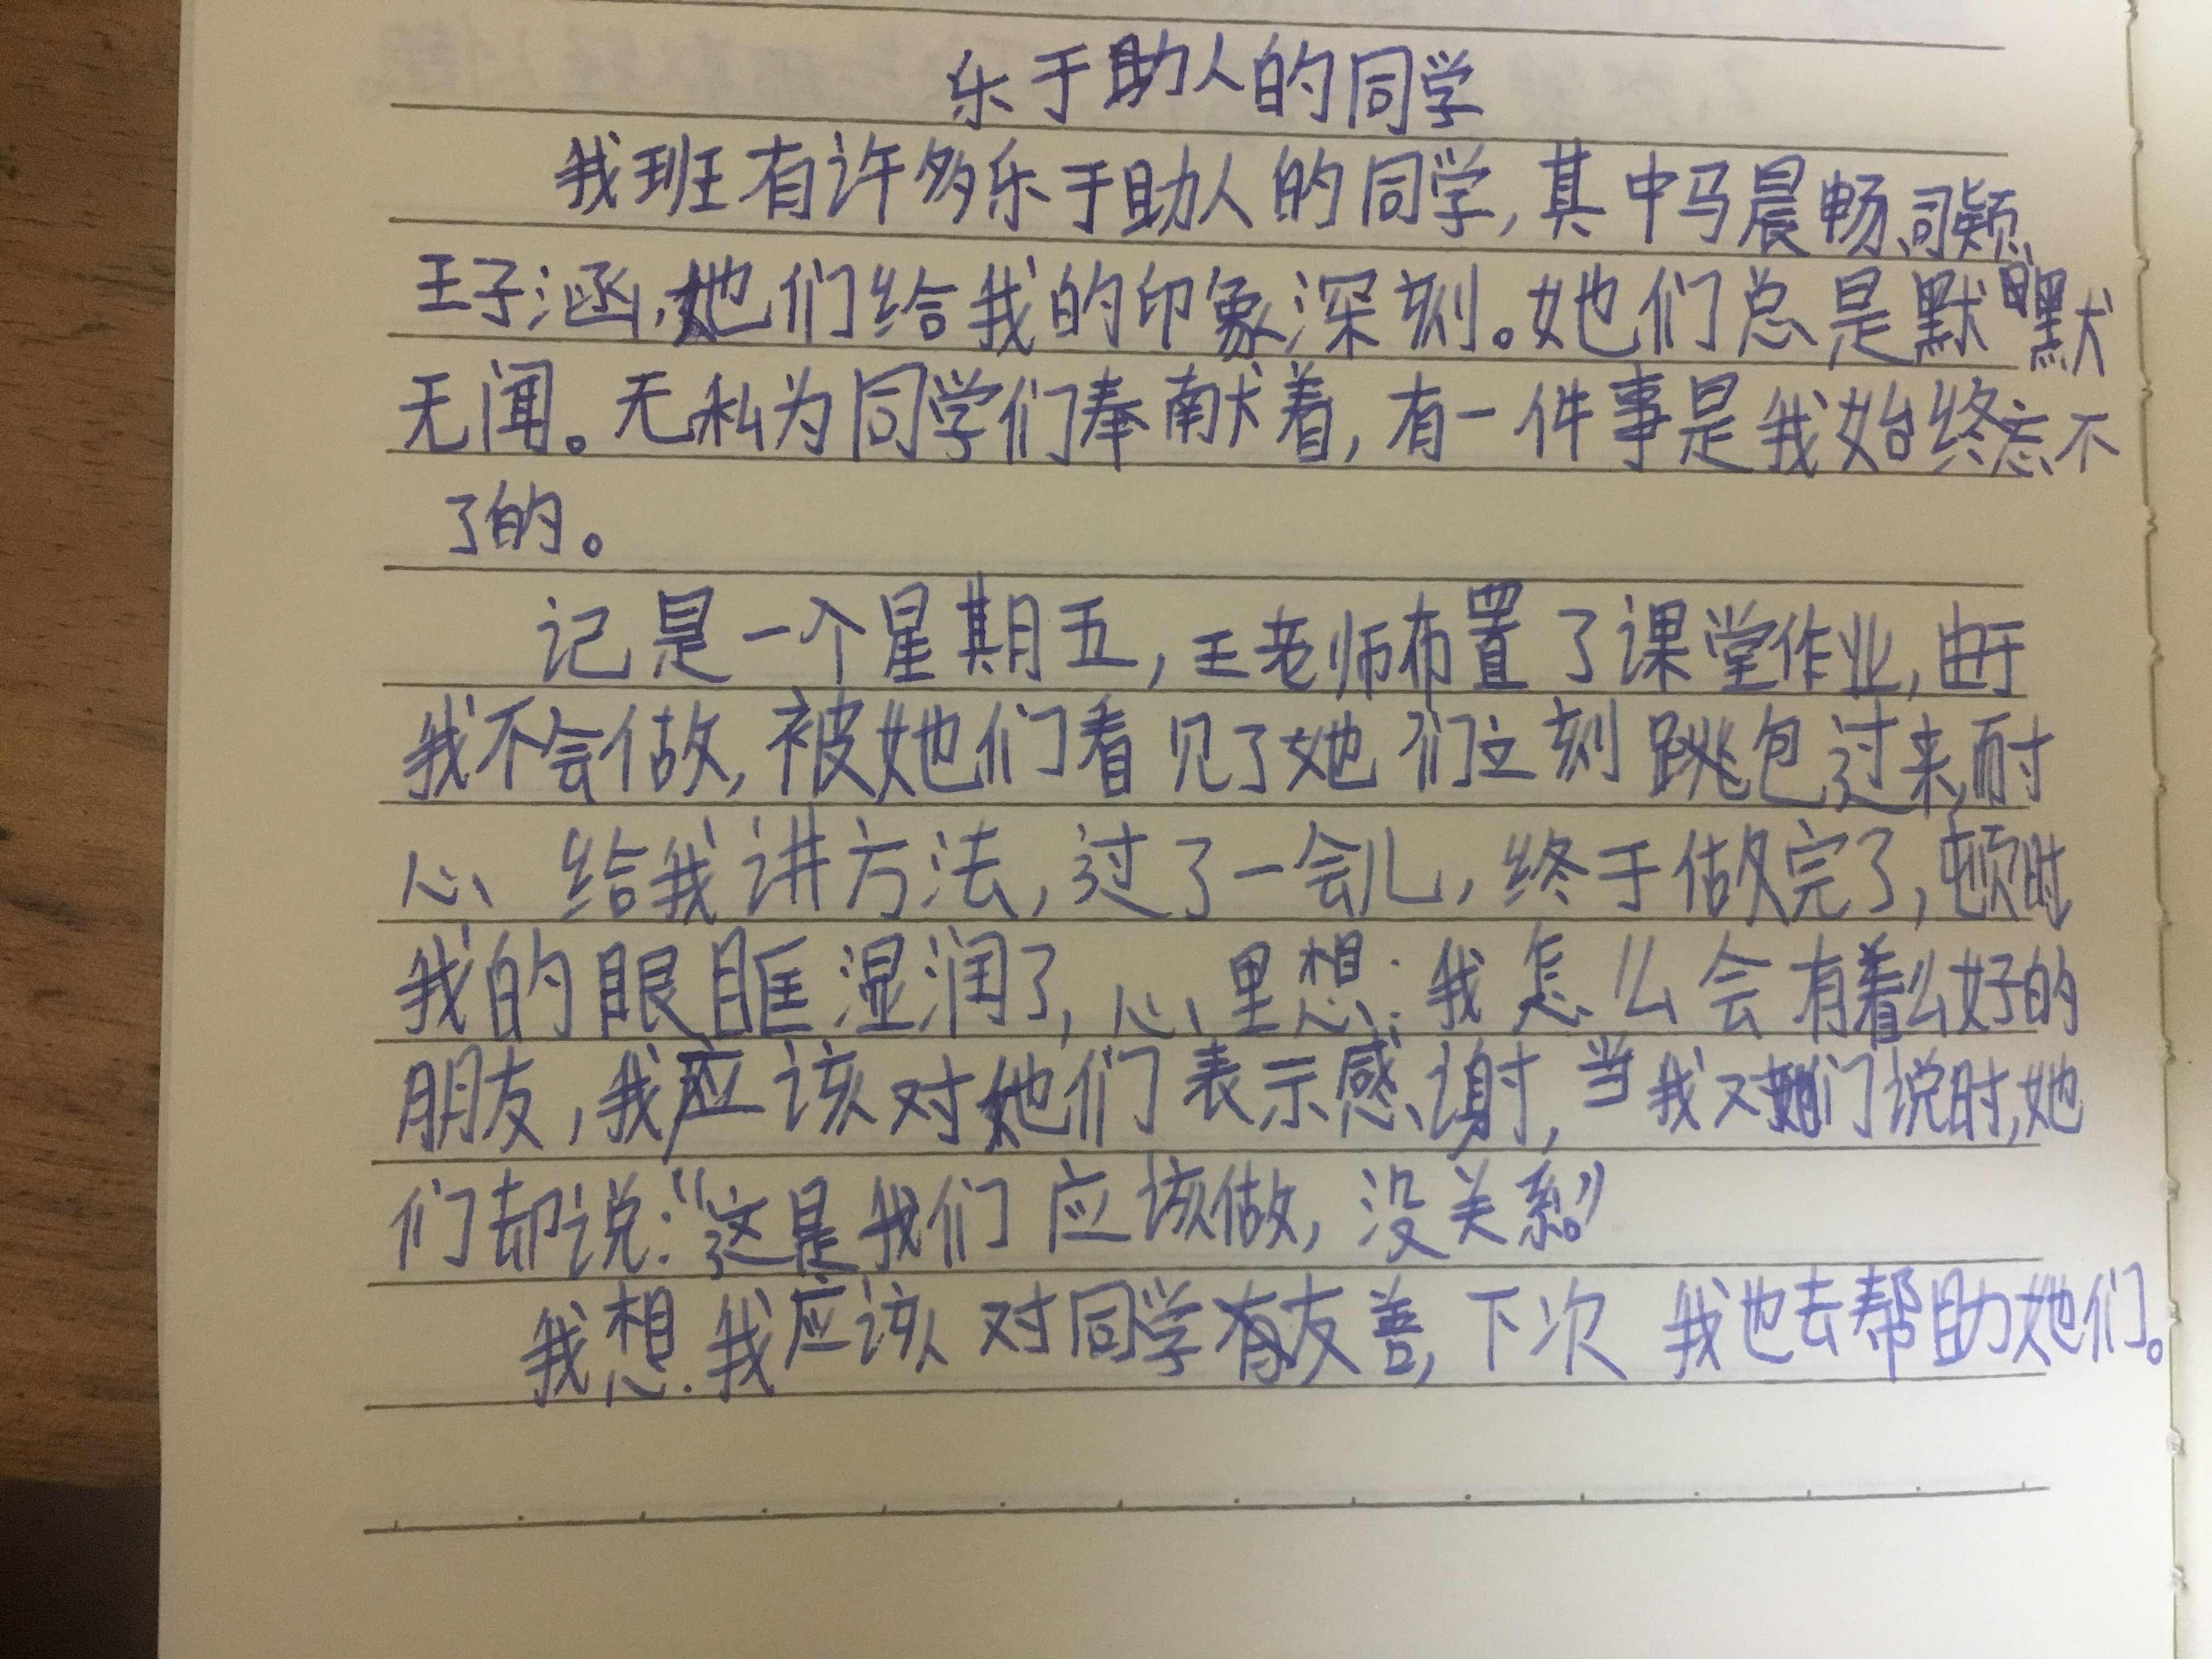 乐于助人的同学
我班有许多乐于助人的同学,其中马晨畅、司颖、
王子涵,她们给我的印象深刻。她们总是默默
无闻。无私为同学们奉献着,有一件事是我始终忘不
了的。
记是一个星期五,王老师布置了课堂作业,由于
我不会做,被她们看见了她们立刻跳包过来,耐
心给我讲方法,过了一会儿,终于做完了,顿时
我的眼眶湿润了,心里想:我怎么会有着么好的
朋友,我应该对她们表示感谢,当我对她们说时,她
们却说:“这是我们应该做,没关系。”
我想.我应该对同学有友善,下次我也去帮助她们。